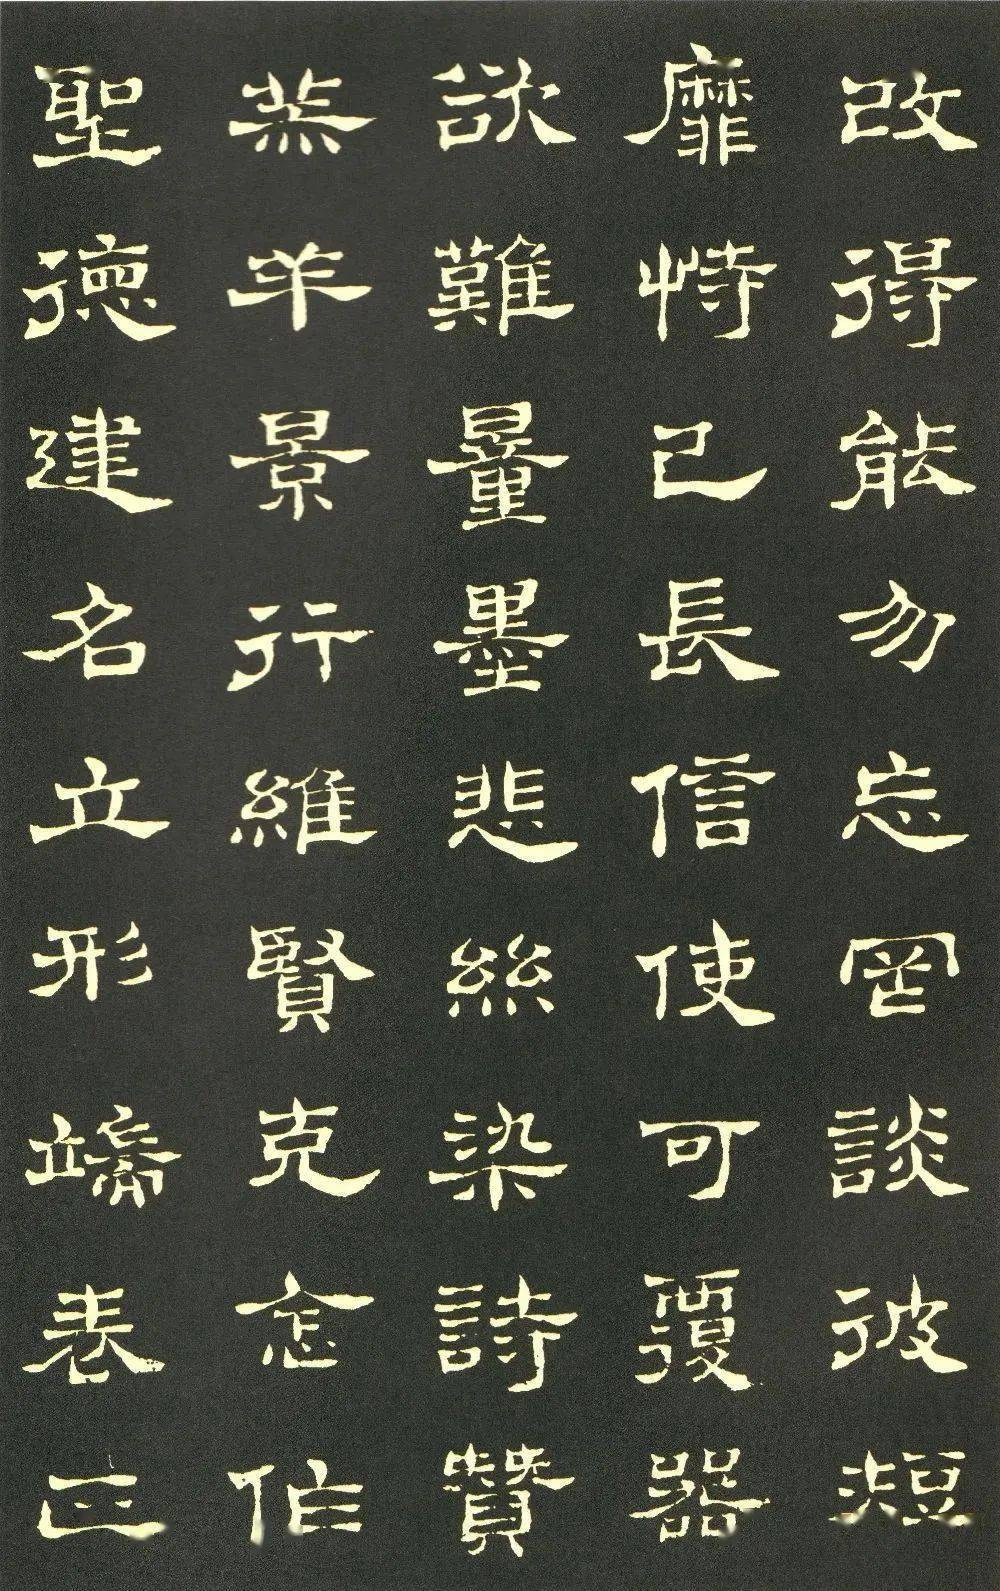 改得能勿忘罔談彼短
靡恃己長信使可覆器
欲難量墨悲絲染詩贊
羔羊景行維賢克念作
聖德建名立形端表正